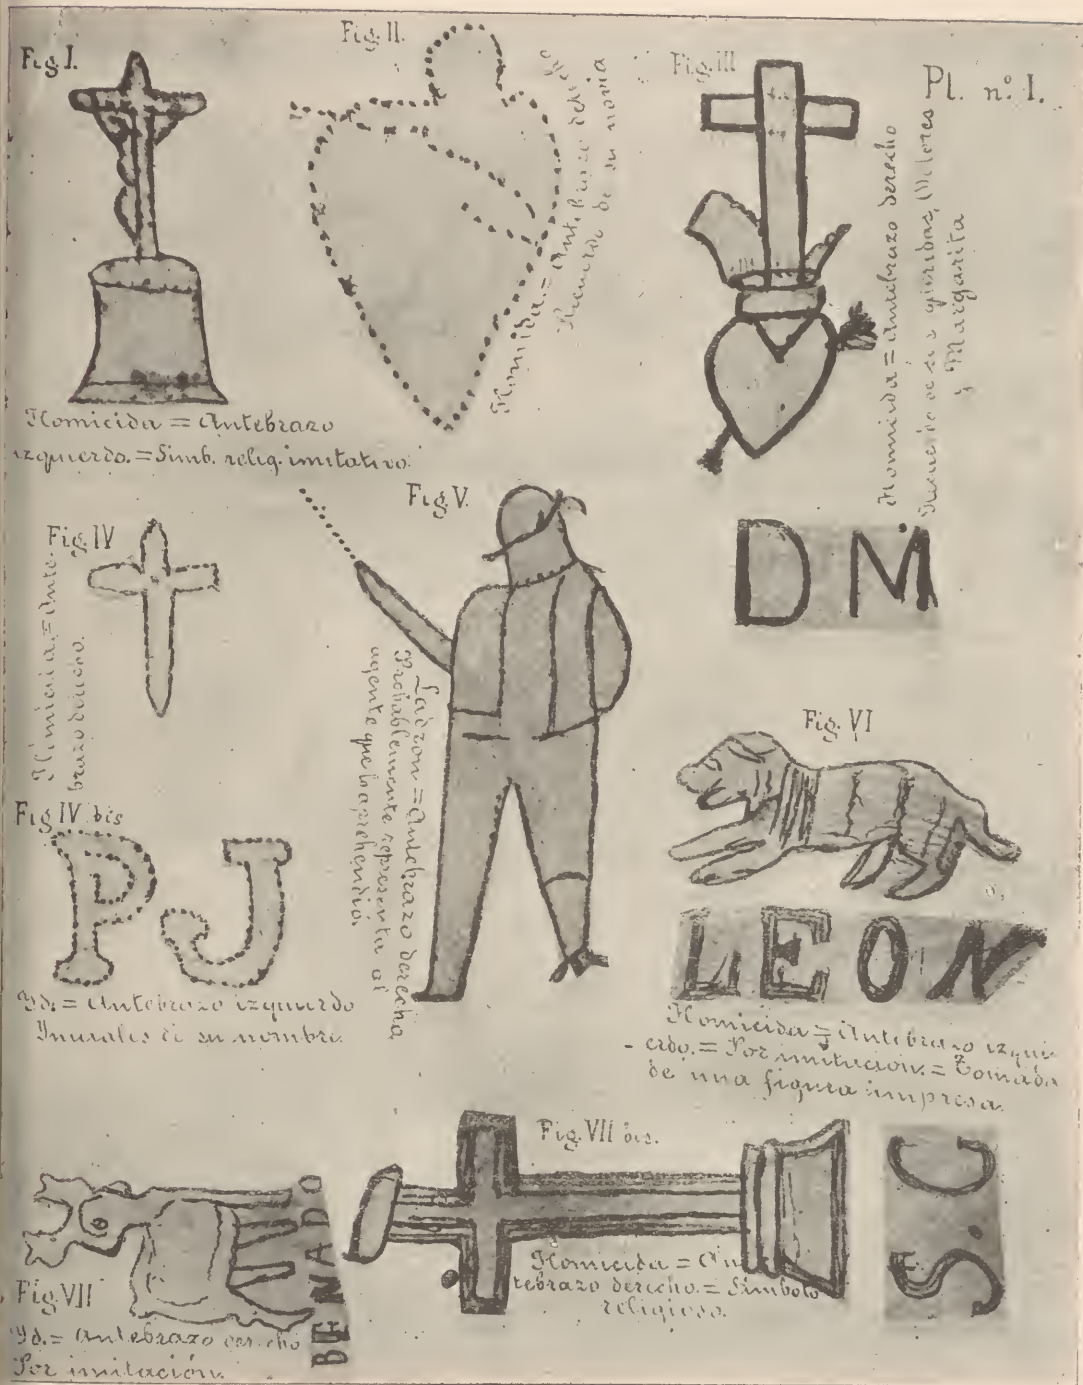 Fig. I.
Homicida = Antebrazo
izquierdo. = Simb. relig. imitativo.
Fig. II.
Homicida. = Antebrazo derecho
Recuerdo de su novia
Fig. III
Pl. nº I.
Homicida = Antebrazo derecho
Recuerdo de sus queridas, Dolores
y Margarita
D M
Fig. IV
Homicida. = Ante-
brazo derecho.
Fig. IV bis
P J
Yd. = Antebrazo izquierdo
Iniciales de su nombre.
Fig. V.
Ladron = Antebrazo derecho
Probablemente representa al
agente que lo aprehendió.
Fig. VI
LEON
Homicida = Antebrazo izqui-
erdo. = Por imitación. = Tomada
de una figura impresa.
Fig. VII
BENADO
Yd. = Antebrazo derecho
Por imitación.
Fig. VII bis.
Homicida = An-
tebrazo derecho. = Simbolo
religioso.
S. C